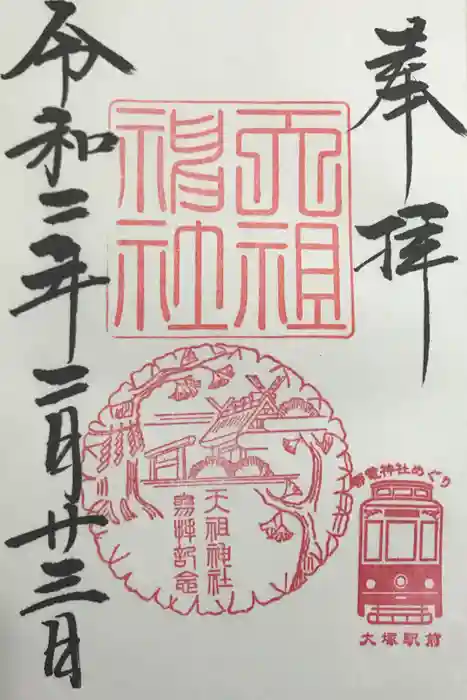 奉拝
天祖
神社
天祖神社
参拝記念
都電神社めぐり
大塚駅前
令和二年二月廿三日